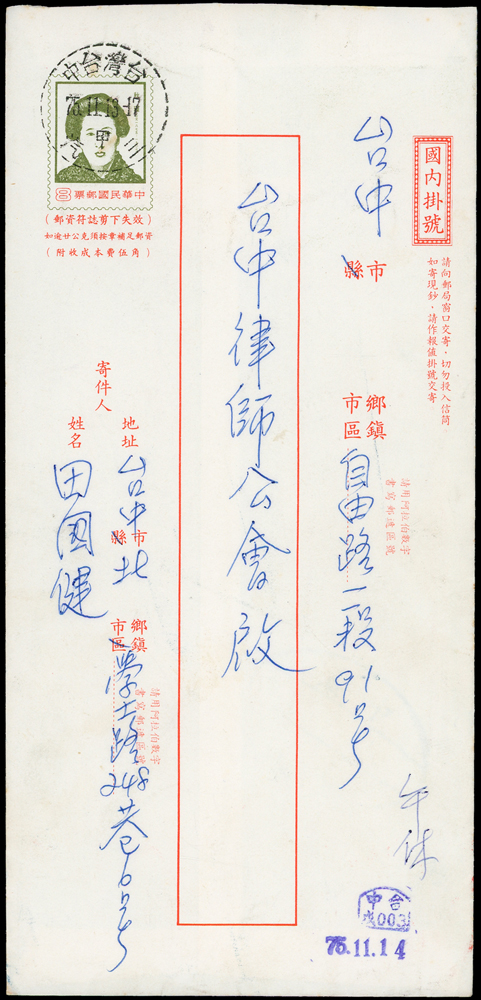 國內掛號
請向郵局窗口交寄，切勿投入信筒
如寄現鈔，請作報值掛號交寄
台中 縣市 鄉鎮市區 自由路一段91號
請用阿拉伯數字
書寫郵遞區號
午休
台中律師公會啟
台灣台中
75.11.13-17
中華民國郵票
(郵資符誌剪下失效)
如逾廿公克須按章補足郵資
(附收成本費伍角)
寄件人
地址 台中 縣市 北 鄉鎮市區 學士路248巷6號
請用阿拉伯數字
書寫郵遞區號
姓名 田國健
台中
003
75.11.14